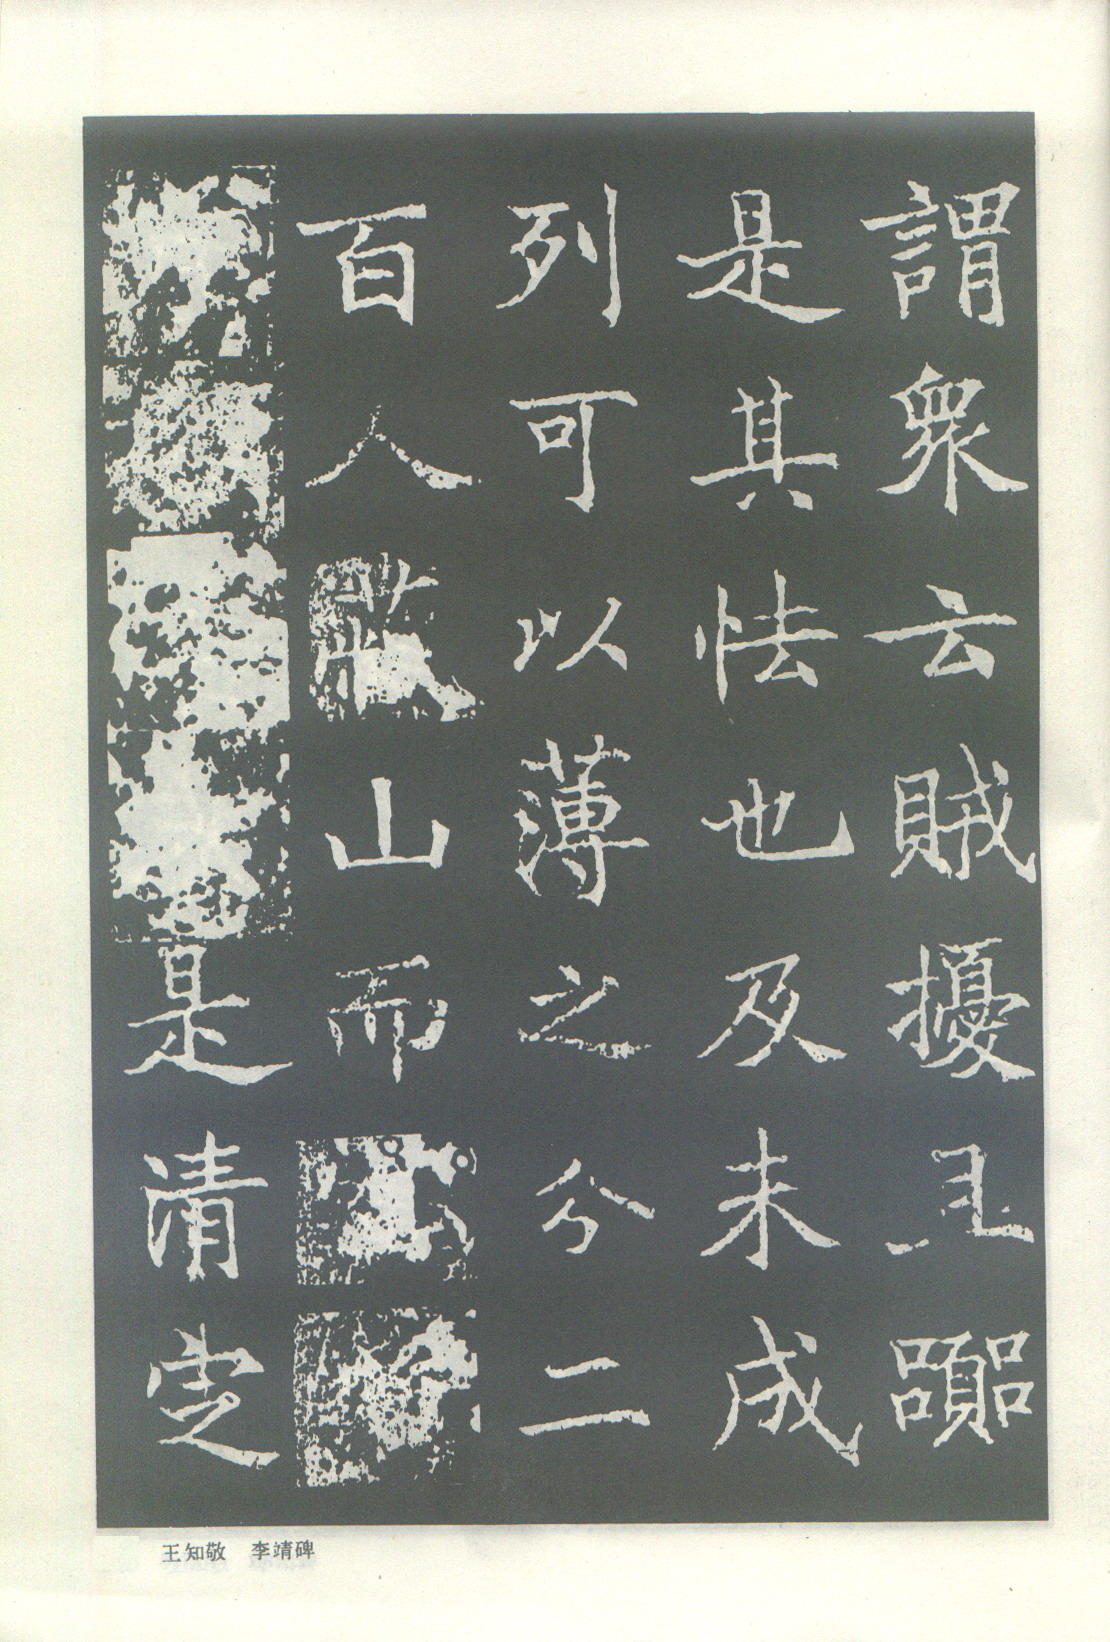 謂衆云賊擾且嚻
是其怯也及未成
列可以薄之分二
百人山而
是清定
王知敬 李靖碑